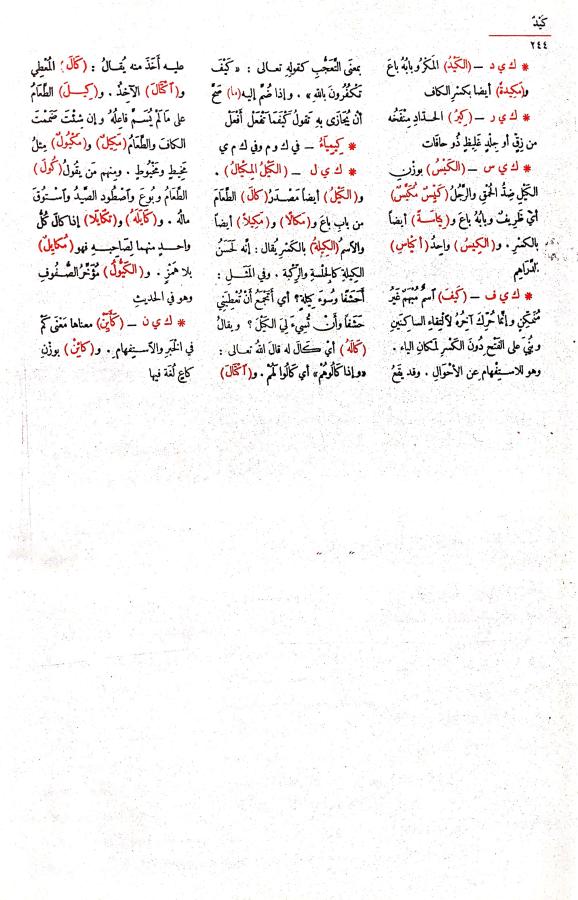 كَيْدٌ
٢٤٤
* ك ي د – (الكَيْدُ) المَكْرُ وبابُهُ باعَ
و(مَكِيدةً) أيضا بكسرِ الكاف
* ك ي ر – (كِيرُ) الحدّادِ مِنْفَخُه
من زِقٍّ أو جِلْدٍ غَلِيظٍ ذُو حافَات
* ك ي س – (الكَيْسُ) بوزْنِ
الكَيْلِ ضِدُّ الحُمْقِ والرَّجُلُ (كَيِّسٌ مُكَيَّسٌ)
أيْ ظَرِيفٌ وبابُهُ باعَ و(كِياسَةً) أيضاً
بالكسْرِ . و(الكِيسُ) واحِدُ (أكْيَاسِ)
الدَّرَاهِمِ
* ك ي ف – (كَيْفَ) اسمٌ مُبْهَمٌ غَيْرُ
مُتَمَكِّنٍ وإنّما حُرِّكَ آخِرُهُ لِالْتِقاءِ الساكِنَيْنِ
وبُنِيَ على الفَتْحِ دُونَ الكَسْرِ لمَكانِ الياء .
وهو للاستِفْهامِ عنِ الأحْوَالِ . وقد يَقَعُ
بمعنَى التَّعَجُّبِ كقولِهِ تعالى : « كَيْفَ
تَكْفُرُونَ باللهِ » . وإذا ضُمَّ إليهِ (ما) صَحَّ
أنْ يُجَازَى بهِ تَقُولُ كَيْفَمَا تَفْعَلْ أَفْعَلْ
* كِيمِيَاءُ – في ك و م وفي ك م ي
* ك ي ل – (الكَيْلُ المِكْيَالُ) .
و(الكَيْلُ) أيضاً مَصْدَرُ (كَالَ) الطَّعَامَ
من بابِ باعَ و(مَكَالًا) و(مَكِيلاً) أيضاً
والاسمُ (الكِيلَةُ) بالكَسْرِ يُقال : إنّه لَحَسَنُ
الكِيلةِ كالجِلْسَةِ والرِّكْبَةِ . وفي المَثَلِ :
أحَشَفًا وسُوءَ كِيلَةٍ؟ أي أتَجْمَعُ أنْ تُعْطِيَنِي
حَشَفاً وأنْ تُسِيءَ لِيَ الكَيْلَ ؟ ويقالُ
(كالَهُ) أيْ كَالَ له قالَ اللهُ تعالى :
«وإذا كَالُوهُمْ» أي كَالُوا لَهُمْ . و(اكْتَالَ)
عليه أَخَذَ منه يُقالُ : (كَالَ) المُعْطِي
و(اكْتَالَ) الآخِذُ . و(كِيلَ) الطَّعَامُ
على مَا لم يُسَمَّ فاعِلُهُ وإن شِئْتَ ضَمَمْتَ
الكافَ والطَّعَامُ (مَكِيلٌ) و(مَكْيُولٌ) مِثْلُ
مَخِيطٍ ومَخْيُوطٍ . ومنهم مَن يَقُولُ (كُولَ)
الطَّعَامُ وبُوعَ واصْطُودَ الصَّيْدُ واسْتُوقَ
مالُهُ . و(كَايَلَهُ) و(تَكَايَلَا) إذا كالَ كُلُّ
واحدٍ منهما لِصاحِبِهِ فهو (مُكَايِلٌ)
بلا هَمْزٍ . و(الكَيُّولُ) مُؤَخَّرُ الصُّفُوفِ
وهو في الحديثِ
* ك ي ن – (كَأَيِّنْ) معناها مَعْنَى كَمْ
في الخَبَرِ والاستِفْهامِ . و(كايِنْ) بوزْنِ
كاعٍ لُغَة فيها